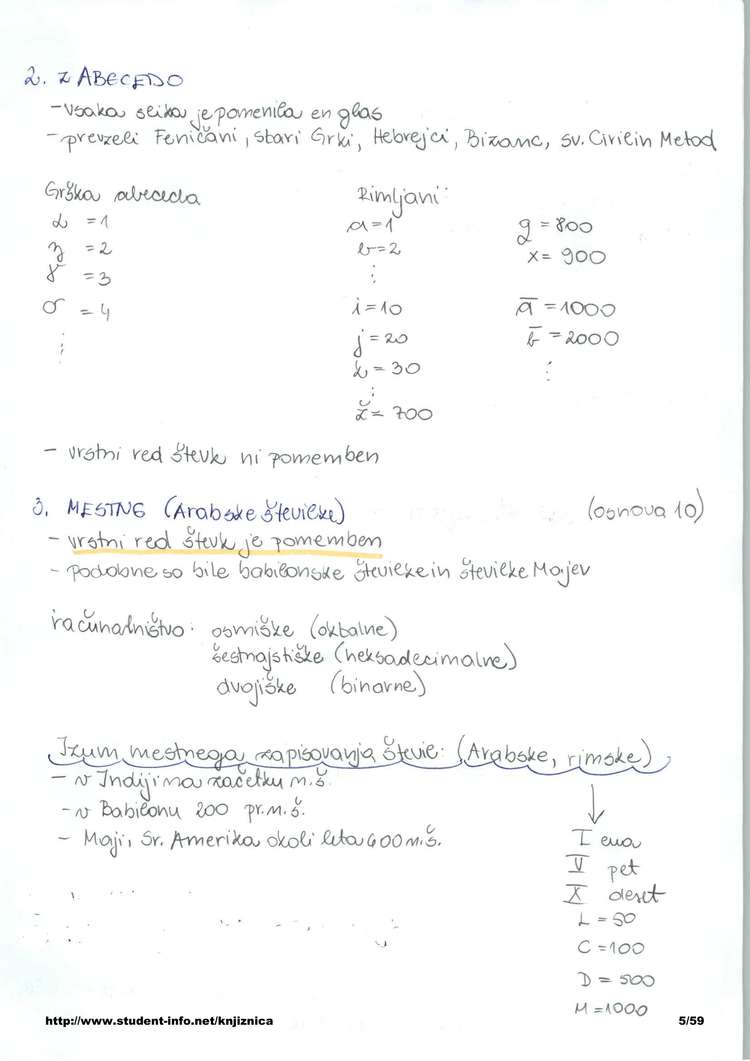 2. Z ABECEDO
- Vsaka slika je pomenila en glas
- prevzeli Feničani, stari Grki, Hebrejci, Bizanc, sv. Ciril in Metod
Grška abeceda
α = 1
= 2
γ = 3
σ = 4
⋮
Rimljani:
a = 1
b = 2
⋮
i = 10
j = 20
k = 30
⋮
ž = 700
q = 800
x = 900
a̅ = 1000
b̅ = 2000
⋮
- vrstni red števk ni pomemben
3. MESTNE (Arabske številke) (osnova 10)
- vrstni red števk je pomemben
- podobne so bile babilonske številke in številke Majev
računalništvo: osmiške (oktalne)
šestnajstiške (heksadecimalne)
dvojiške (binarne)
Izum mestnega zapisovanja števil: (Arabske, rimske)
- v Indiji na začetku n.š.
- v Babilonu 200 pr.n.š.
- Maji, Sr. Amerika okoli leta 600 n.š.
I ena
V pet
X deset
L = 50
C = 100
D = 500
M = 1000
http://www.student-info.net/knjiznica 5/59